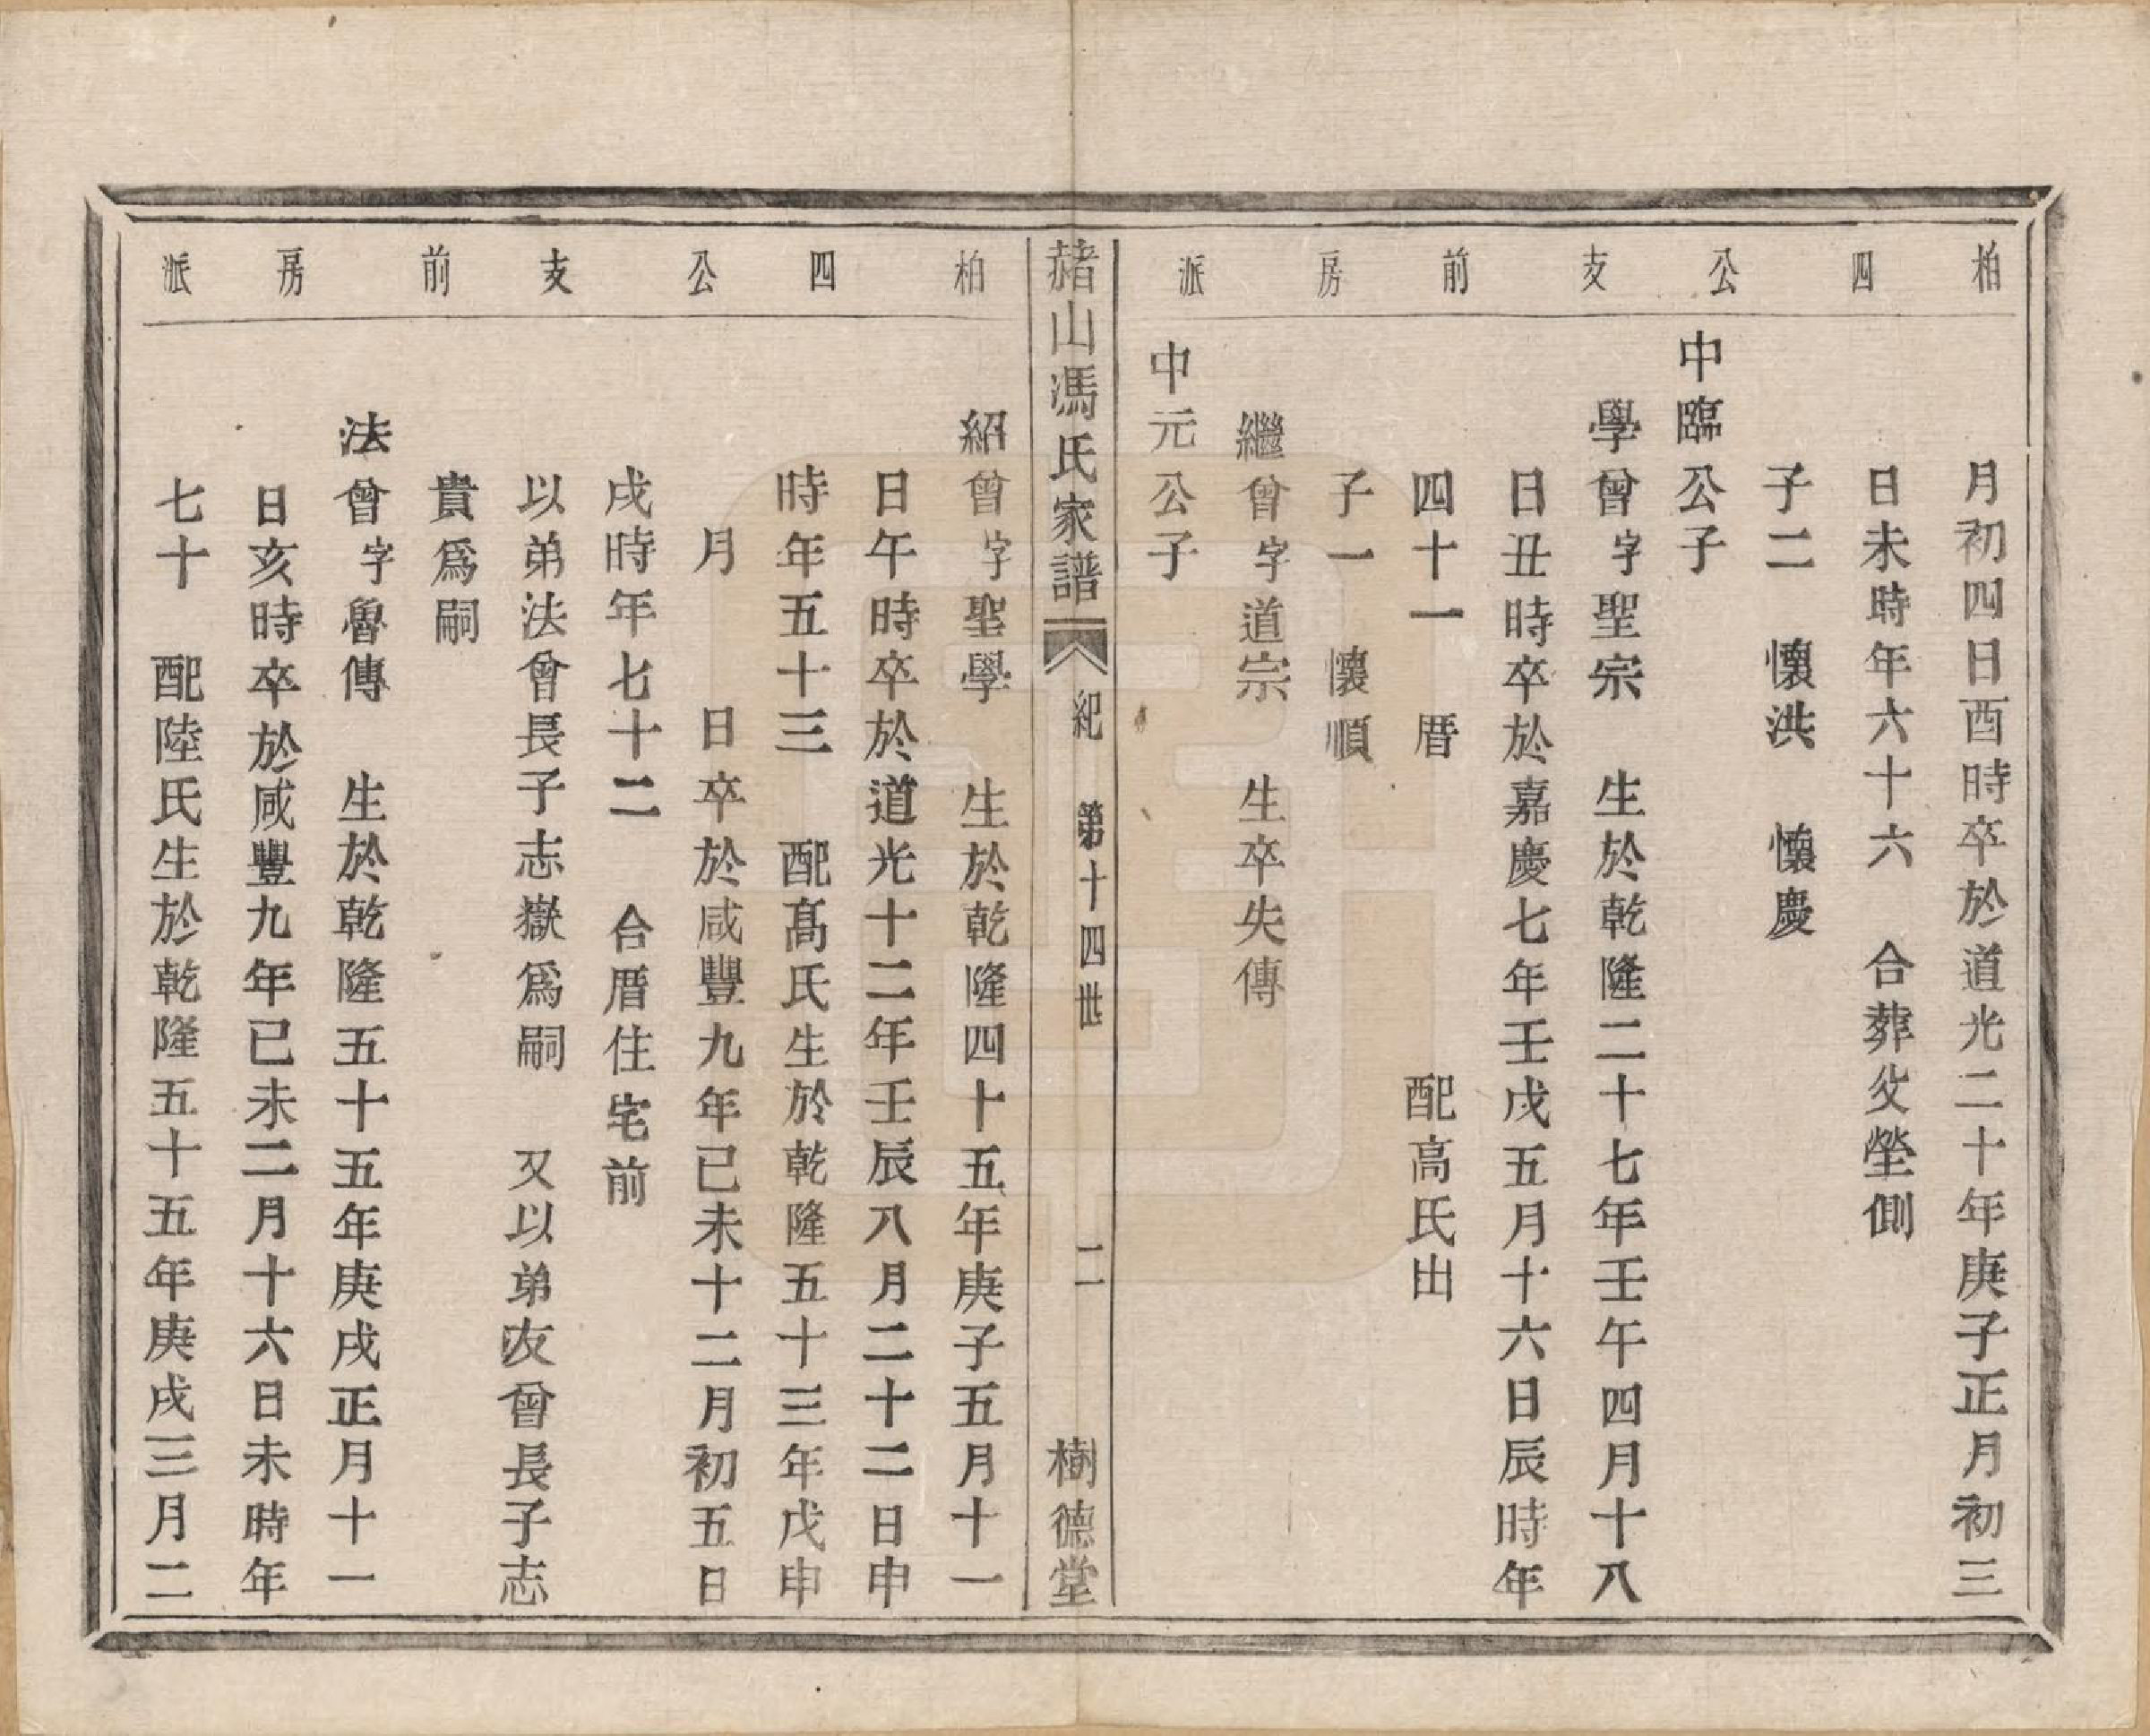 柏四公支前房派
月初四日酉時卒於道光二十年庚子正月初三
日未時年六十六　合葬父塋側
子二　懷洪　懷慶
中臨公子
學曾字聖宗　生於乾隆二十七年壬午四月十八
日丑時卒於嘉慶七年壬戌五月十六日辰時年
四十一　厝　配高氏出
子一　懷順
繼曾字道宗　生卒失傳
中元公子
赭山馮氏家譜　紀　第十四世　二　樹德堂
柏四公支前房派
紹曾字聖學　生於乾隆四十五年庚子五月十一
日午時卒於道光十二年壬辰八月二十二日申
時年五十三　配高氏生於乾隆五十三年戊申
月　日卒於咸豐九年已未十二月初五日
戌時年七十二　合厝住宅前
以弟法曾長子志嶽爲嗣　又以弟友曾長子志
貴爲嗣
法曾字魯傳　生於乾隆五十五年庚戌正月十一
日亥時卒於咸豐九年已未二月十六日未時年
七十　配陸氏生於乾隆五十五年庚戌三月二